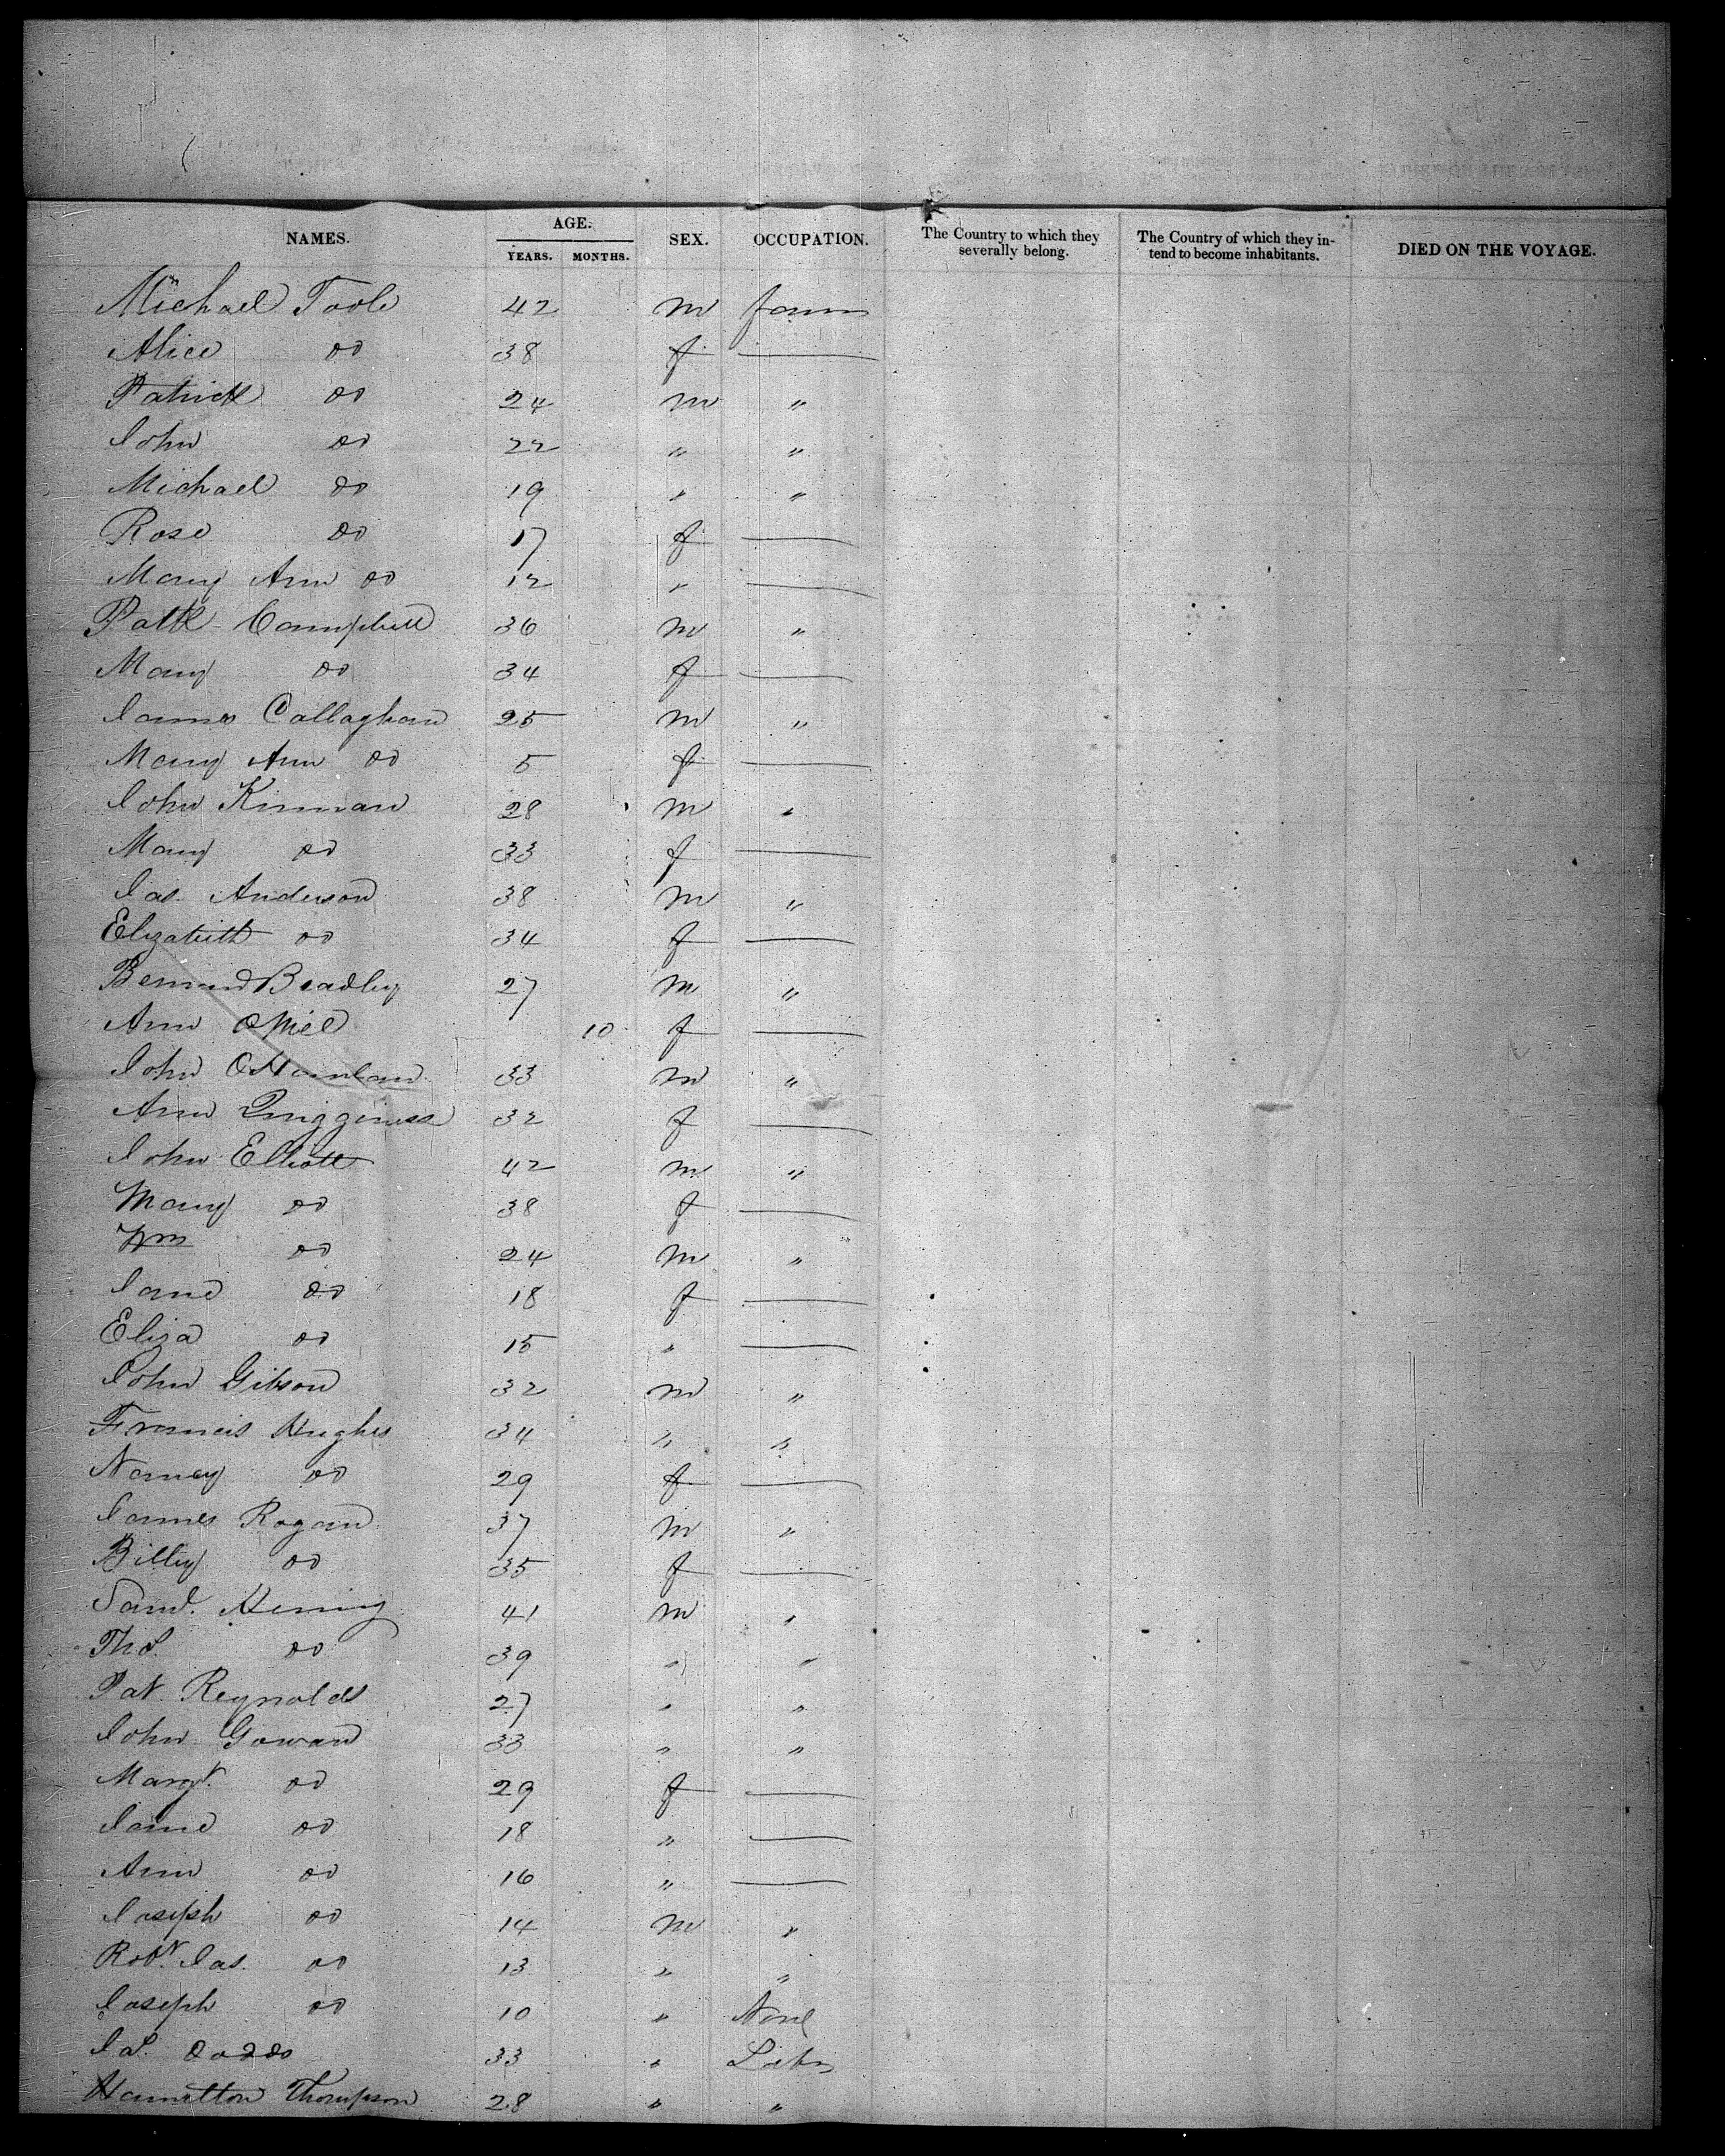 NAMES. AGE. YEARS. MONTHS. SEX. OCCUPATION. The Country to which they severally belong. The Country of which they intend to become inhabitants. DIED ON THE VOYAGE.
Michael Toole 42 m farm
Alice do 38 f —
Patrick do 24 m "
John do 22 " "
Michael do 19 " "
Rose do 17 f —
Mary Ann do 12 " —
Patk Campbell 36 m "
Mary do 34 f —
James Callaghan 25 m "
Mary Ann do 5 f —
John Kinnan 28 m "
Mary do 33 f —
Jas. Anderson 38 m "
Elizabeth do 34 f —
Bernard Bradley 27 m "
Ann ONiel 10 f —
John OHanlan 33 m "
Ann 32 f —
John Elliott 42 m "
Mary do 38 f —
Wm do 24 m "
Jane do 18 f —
Eliza do 15 " —
John Gibson 32 m "
Francis Hughes 34 " "
Nancy do 29 f —
James Rogan 37 m "
do 35 f —
Saml. 41 m "
Thos. do 39 " "
Pat. Reynolds 27 " "
John Gowan 33 " "
Margt. do 29 f —
Jane do 18 " —
Ann do 16 " —
Joseph do 14 m "
Robt. Jas. do 13 " "
Joseph do 10 " None
Jas. Dodds 33 "
Hamilton Thompson 28 " "